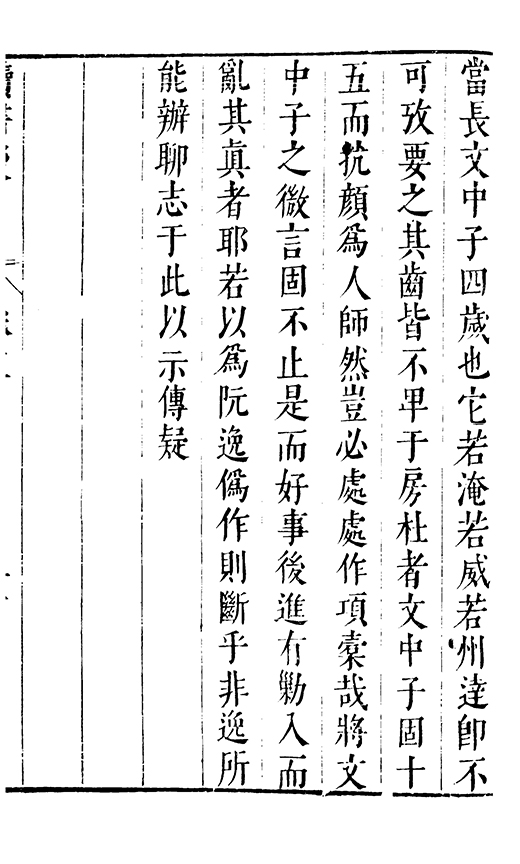 當長文中子四歲也它若淹若威若州達卽不
可攷要之其齒皆不𤰞于房杜者文中子固十
五而抗顏爲人師然豈必處處作項槖哉將文
中子之微言固不止是而好事後進有勦入而
亂其眞者耶若以爲阮逸僞作則斷乎非逸所
能辦聊志于此以示傳疑